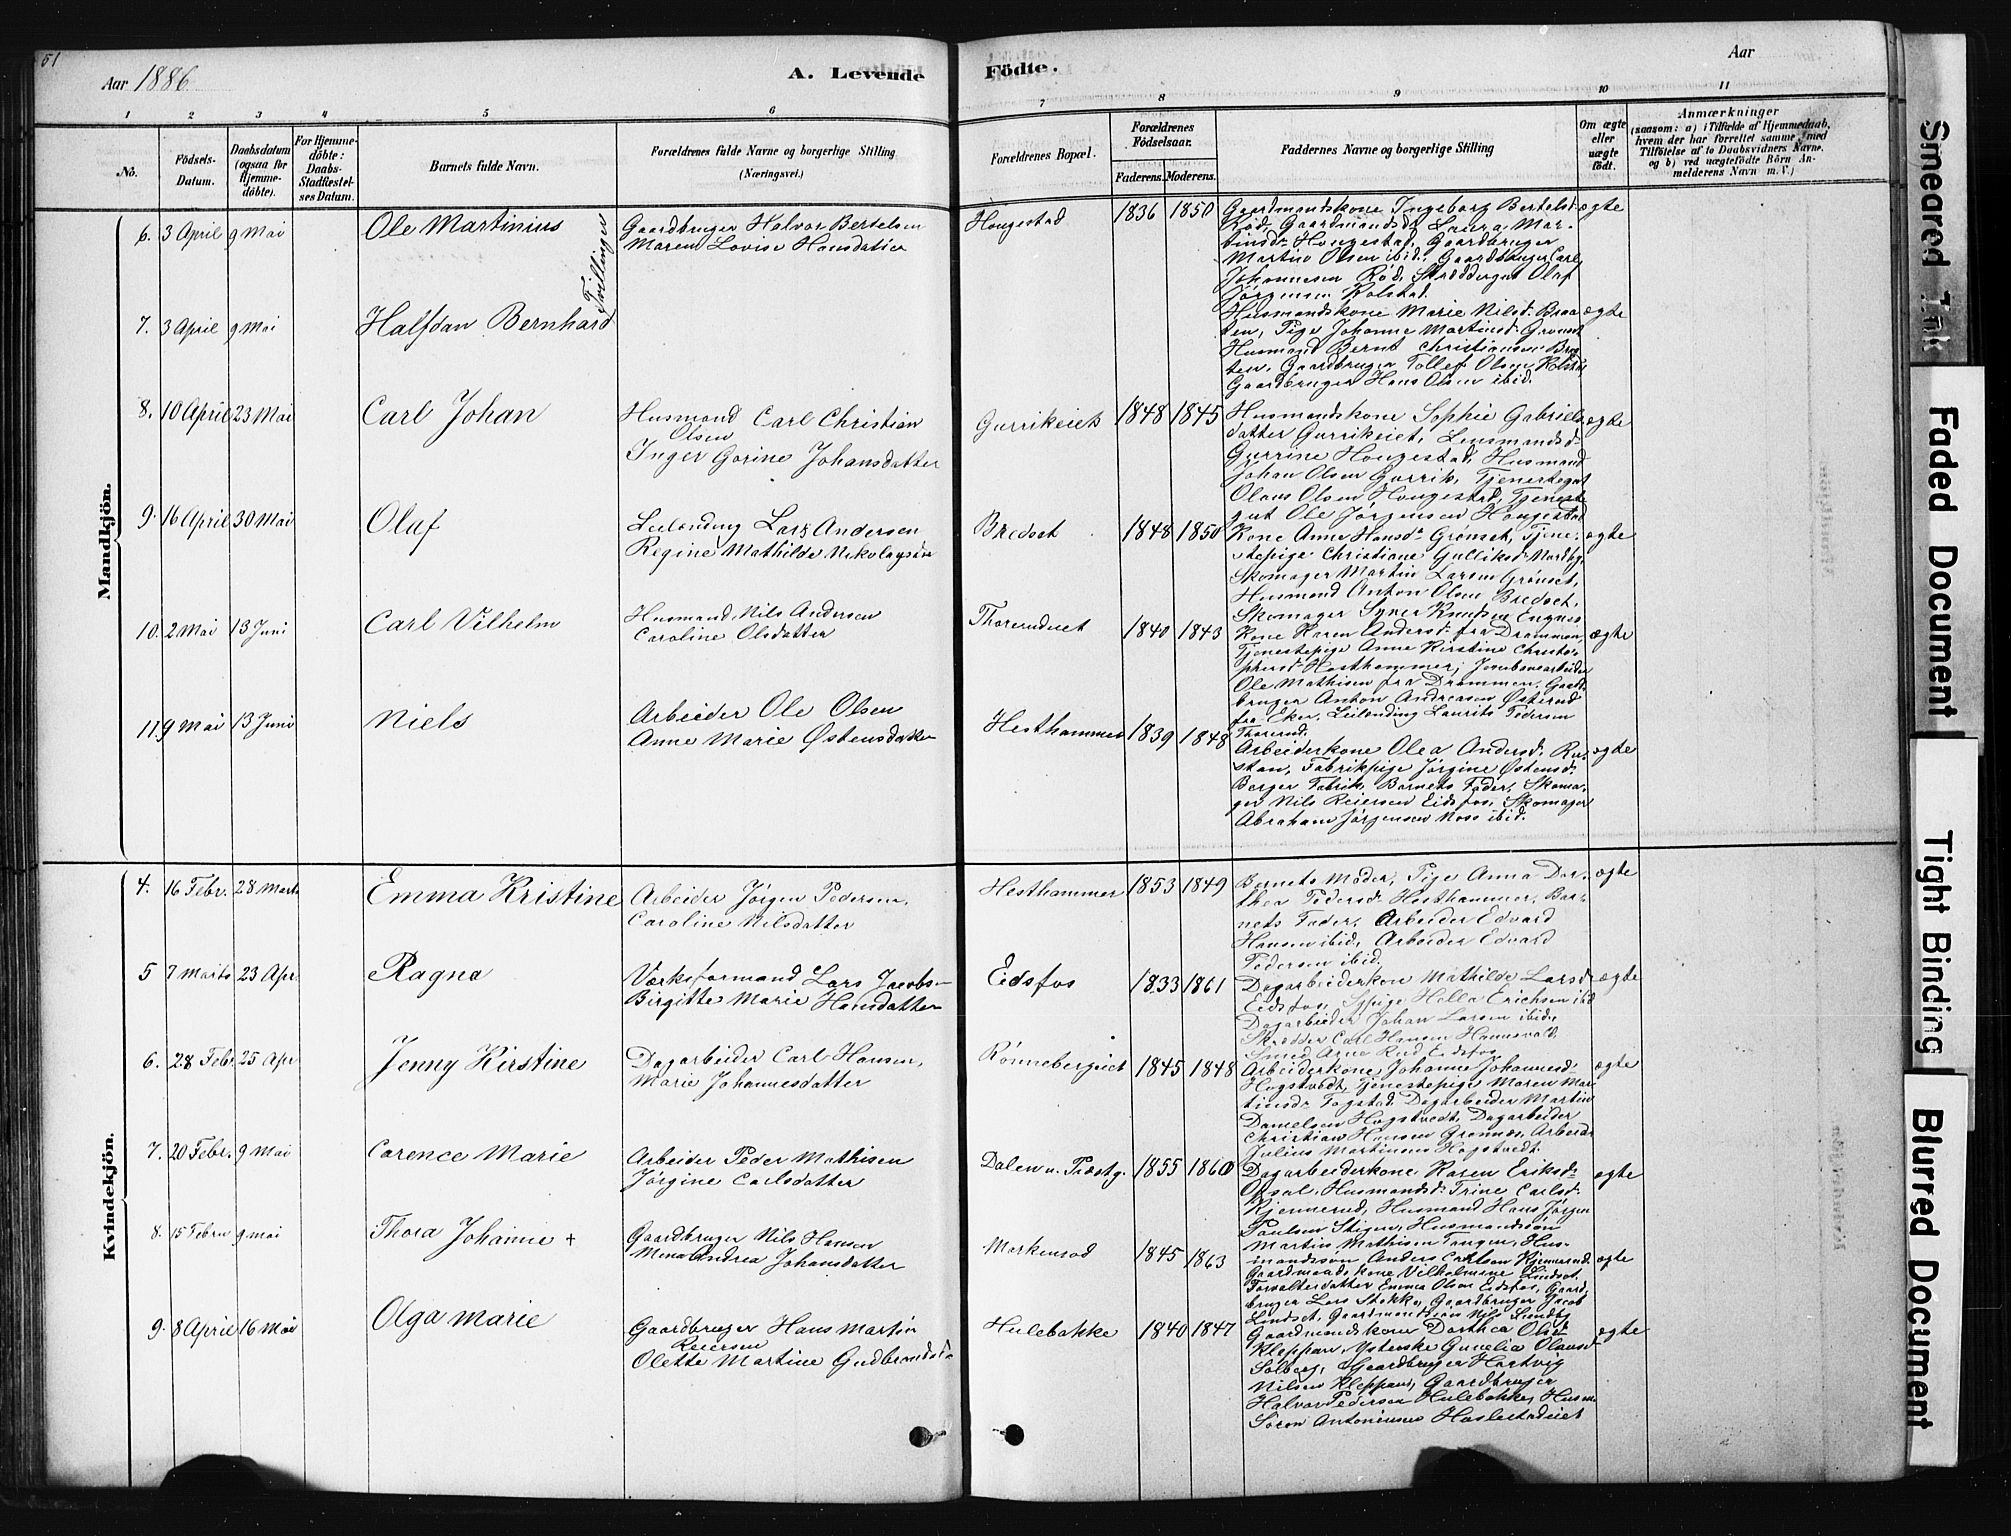 51
Aar 1886
A. Levende
Fødte.
Aar
1 2 3 4 5 6 7 8 9 10 11
No.
Fødsels-
Datum.
Daabsdatum
(ogsaa for
Hjemme-
døbte).
For Hjemme-
døbte:
Daabs-
Stadfæstel-
ses Datum.
Barnets fulde Navn.
Forældrenes fulde Navne og borgerlige Stilling
(Næringsvei.)
Forældrenes Bopæl.
Forældrenes
Fødselsaar.
Faderens. Moderens.
Faddernes Navne og borgerlige Stilling
Om ægte
eller
uægte
født.
Anmærkninger
(saasom: a) i Tilfælde af Hjemmedaab,
hvem der har forrettet samme, med
Tilføielse af to Daabsvidners Navne,
og b) ved uægtefødte Børn An-
melderens Navn m. V.)
Mandkjön.
6. 3 April 9 Mai Ole Martinius
Tvillinger
Gaardbruger Halvor Bertelsen
Maren Lovise Hansdatter
Hougestad 1836 1850
Gaardmandskone Ingeborg Bertelsd. ægte
Rød, Gaardmandsdt. Laura Mar-
tinsd. Hougestad, Gaardbruger
Martin Olsen ibid., Gaardbruger Carl
Johannesen Rød, Skræddergut Olaf
Jørgensen Kolstad.
7. 3 April 9 Mai Halfdan Bernhard
Husmandskone Marie Nilsd. Braa- ægte
ten, Pige Johanne Martinsd.
Husmand Bernt Christiansen Braa
ten, Gaardbruger Tollef Olsen
Gaardbruger Hans Olsen ibid.
8. 10 April 23 Mai Carl Johan
Husmand Carl Christian
Olsen
Inger Gorine Johansdatter
Gurrikeiet 1848 1845
Husmandskone Sophie Gabriels ægte
datter Gurrikeiet, Lensmandsd.
Gurrine Hougestad, Husmand
Johan Olsen Gurrik, Tjenestegut
Olaus Olsen Hougestad, Tjeneste
gut Ole Jørgensen Hougestad
9. 16 April 30 Mai Oluf
Leilænding Lars Andersen
Regine Mathilde Nikolaysen
Bredset 1848 1850
Kone Anne Hansd. Grønset, Tjene- ægte
stepige Christiane Gulliksd.
Skomager Martin Larsen Grønset,
Husmand Anton Olsen Bredset,
Skomager Syver Knudsen
10. 2 Mai 13 Juni Carl Vilhelm
Husmand Nils Andersen
Caroline Olsdatter
Thorerudeiet 1840 1843
Kone Karen Andersd. fra Drammen, ægte
Tjenestepige Anne Kirstine Christo-
phersd. Hesthammer, Jernbanearbeider
Ole Mathisen fra Drammen, Gaard-
bruger Anton Andreasen Østerud
fra Eker, Leilænding Laurits Pedersen
Thorerud.
11. 9 Mai 13 Juni Niels
Arbeider Ole Olsen
Anne Marie Østensdatter
Hesthammer 1839 1848
Arbeiderkone Olea Andersd. Ru- ægte
stan, Fabrikpige Jørgine Østensd.
Berger Fabrik, Barnets Fader, Skoma-
ger Nils Reiersen Eidsfos, Skomager
Abraham Jørgensen Moss ibid.
Kvindekjön.
4. 16 Febr. 28 Marts Emma Kristine
Arbeider Jørgen Pedersen,
Caroline Nilsdatter
Hesthammer 1853 1849
Barnets Moder, Pige Anna Dor- ægte
thea Pedersd. Hesthammer, Bar-
nets Fader, Arbeider Edvard
Hansen ibid, Arbeider Edvard
Pedersen ibid.
5 7 Marts 23 Apr. Ragna
Værksformand Lars Jacobs-
Birgitte Marie Hansdatter
Eidsfos 1833 1861
Dagarbeiderkone Mathilde Larsd. ægte
Eidsfos, Sypige Helle Erichsen ibid
Dagarbeider Johan Larsen ibid.,
Skrædder Carl Hansen
Smed Arne Eidsfos
6. 28 Febr 25 Apr Jenny Kirstine
Dagarbeider Carl Hansen,
Marie Johannesdatter
Rønnebergeiet 1845 1848
Arbeiderkone Johanne Johannesd. ægte
Hogstvedt, Tjenestepige Maren Mar
tinsd. Fogstad, Dagarbeider Martin
Danielsen Hogstvedt, Dagarbeider
Christian Hansen Grønnes, Arbeider
Julius Martinsen Hogstvedt.
7. 20 Febr. 9 Mai Carence Marie
Arbeider Peder Mathisen
Jørgine Carlsdatter
Dalen u. Præstg. 1855 1860
Dagarbeiderkone Karen Eriksd. ægte
Opsal, Husmandsd. Trine Carlsd.
Kjennerud, Husmand Hans Jørgen
Paulsen Stigen, Husmandssøn
Martin Mathisen Tangen, Hus-
mandssøn Anders Carlsen Kjennerud.
8. 15 Febru 9 mai Thora Johanne +
Gaardbruger Nils Hansen
Mina Andrea Johansdatter
Morkensod 1845 1863 ægte
Gaardmandskone Vilhelmine Lindset,
Forvalterdatter Emma Olsen Eidsfos, Gaard
bruger Lars Stokke, Gaardbruger Jacob
Lindset, Gaardmandssøn Nils
9. 8 April 16 Mai Olga Marie
Gaardbruger Hans Martin
Reiersen
Olette Martine Gudbrandsd.
Hulebakke 1840 1847
Gaardmandskone Dorthea Olsd. ægte
Kleppan, Ysterske Gunelia Olausd.
Solberg, Gaardbruger Hartvig
Nilsen Kleppan, Gaardbruger
Halvor Pedersen Hulebakke, Husm
Søren Antonissen Haslestadeiet
Smeared Ink
Faded Document
Tight Binding
Blurred Document